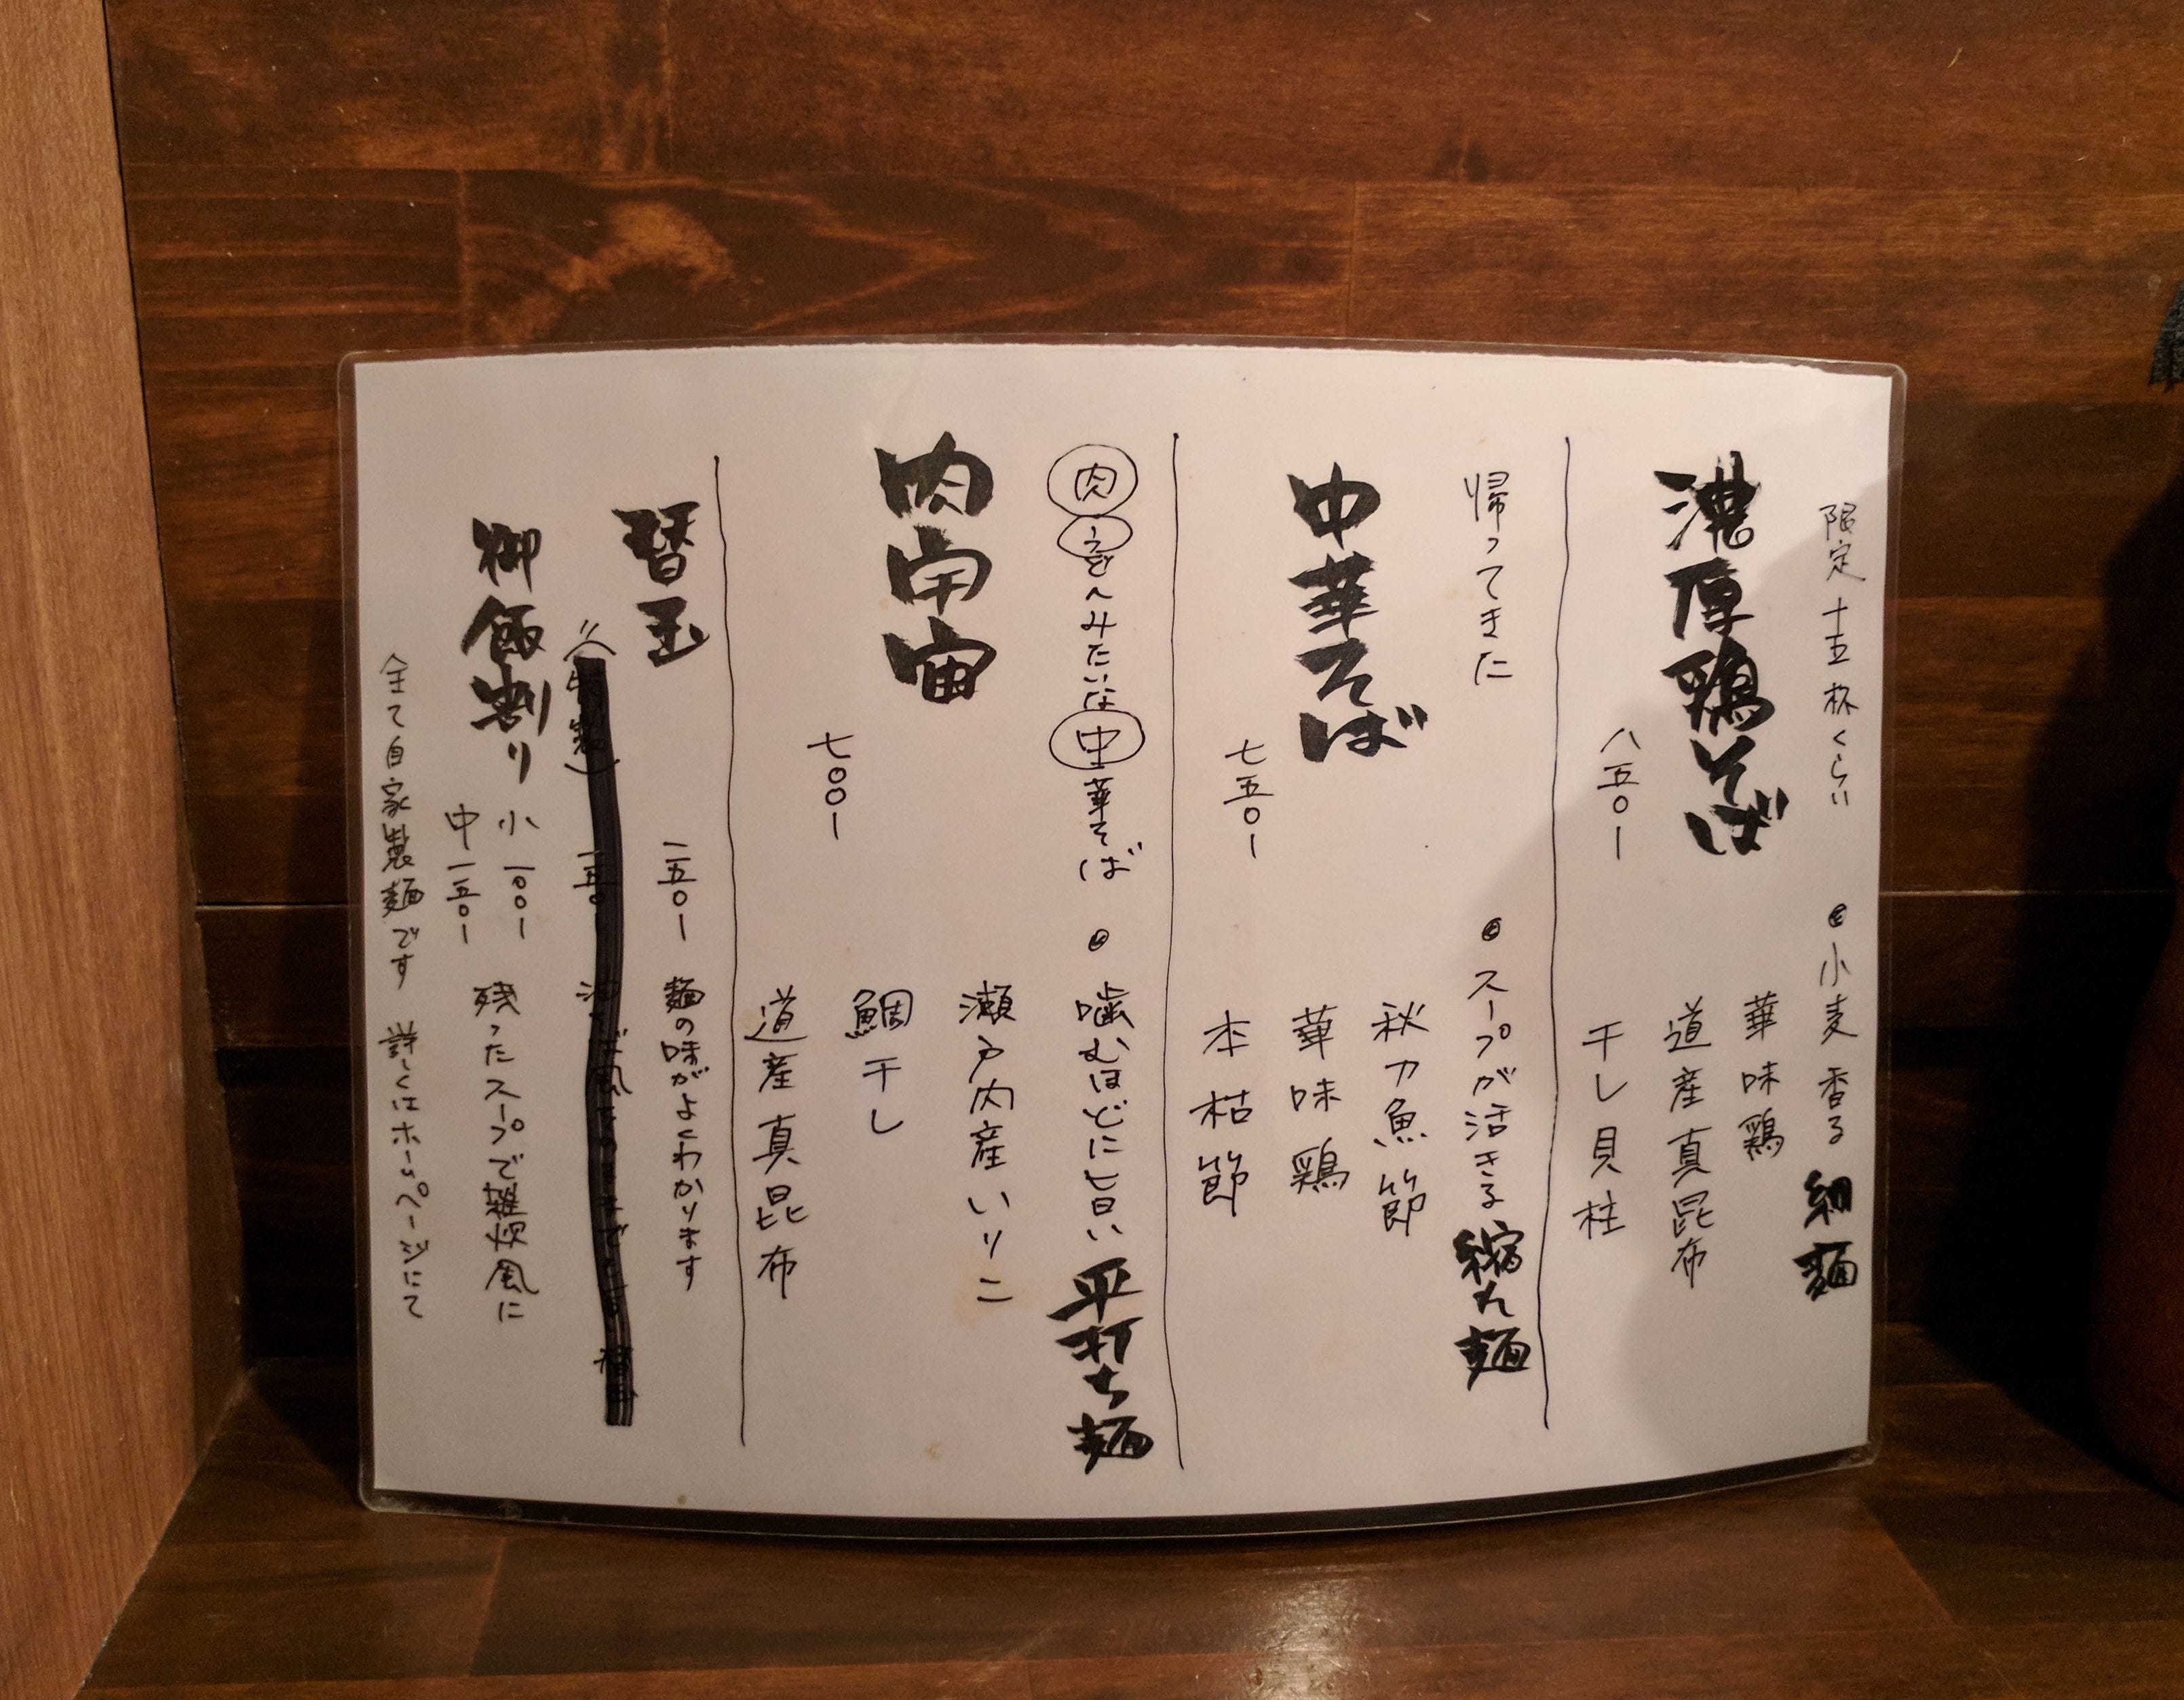 限定十五杯くらい ◎小麦香る 細麺
濃厚鶏そば
華味鶏
道産真昆布
八五〇ー
干し貝柱
帰ってきた ◎スープが活きる 縮れ麺
中華そば
秋刀魚節
華味鶏
七五〇ー
本枯節
肉うどんみたいな中華そば ◎噛むほどに旨い 平打ち麺
肉宇宙
瀬戸内産いりこ
鯛干し
七〇〇ー
道産真昆布
替玉 一五〇ー 麺の味がよくわかります
御飯割り 小 一〇〇ー 残ったスープで雑炊風に
中 一五〇ー
全て自家製麺です 詳しくはホームページにて